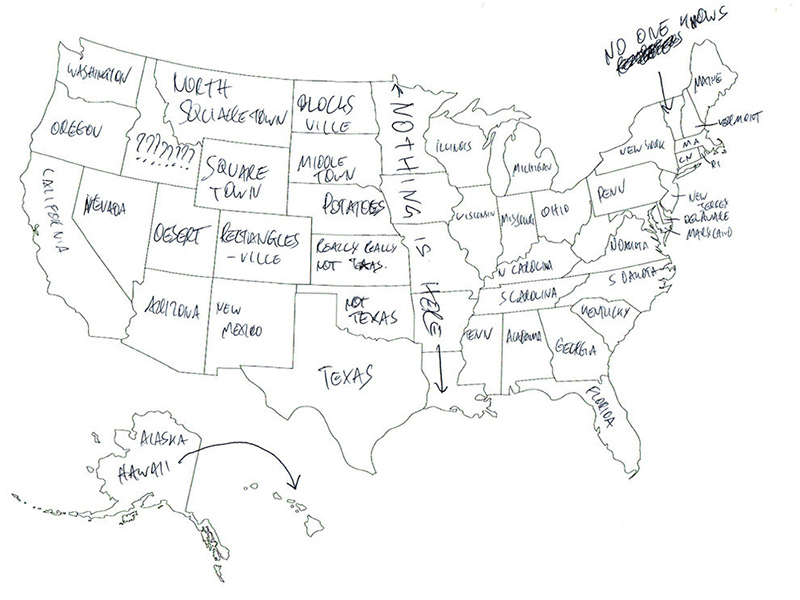 NO ONE KNOWS
WASHINGTON
OREGON
CALIFERNIA
NEVADA
???????
NORTH
SQUARETOWN
SQUARE
TOWN
DESERT
RECTANGLES
-VILLE
ARIZONA
NEW
MEXICO
BLOCKS
VILLE
MIDDLE
TOWN
POTATOES
REALLY REALLY
NOT TEXAS.
NOT
TEXAS
TEXAS
NOTHING IS HERE
ILLINOIS
WISCONSIN
MICHIGAN
MISSOURI
OHIO
N CAROLINA
S CAROLINA
TENN
ALABAMA
GEORGIA
FLORIDA
KENTUCKY
S DAKOTA
N DAKOTA
PENN
NEW YORK
MAINE
VERMONT
MA
CN
RI
NEW
JERSEY
DELAWARE
MARYLAND
ALASKA
HAWAII